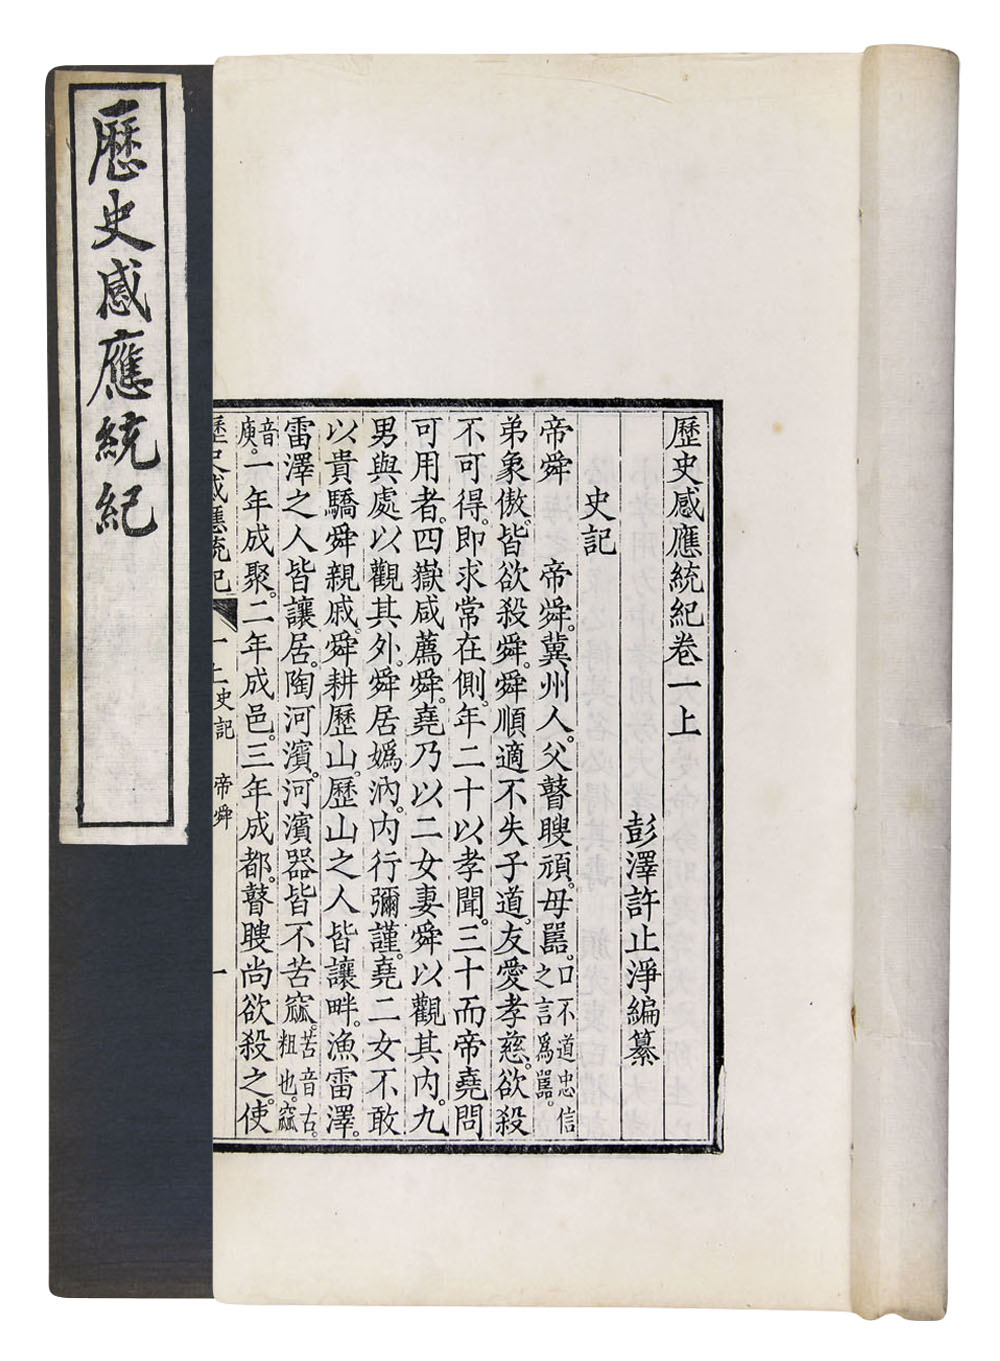 歷史感應統紀
歷史感應統紀卷一上
彭澤許止淨編纂
史記
帝舜　帝舜。冀州人。父瞽瞍頑。母嚚。口不道忠信之言爲嚚。
弟象傲。皆欲殺舜。舜順適不失子道。友愛孝慈。欲殺
不可得。即求常在側。年二十以孝聞。三十而帝堯問
可用者。四嶽咸薦舜。堯乃以二女妻舜以觀其內。九
男與處以觀其外。舜居嬀汭。內行彌謹。堯二女不敢
以貴驕舜親戚。舜耕歷山。歷山之人皆讓畔。漁雷澤。
雷澤之人皆讓居。陶河濱。河濱器皆不苦窳。苦音古。粗也。窳
音庾。一年成聚。二年成邑。三年成都。瞽瞍尚欲殺之。使
歷史感應統紀　一上史記　帝舜　一